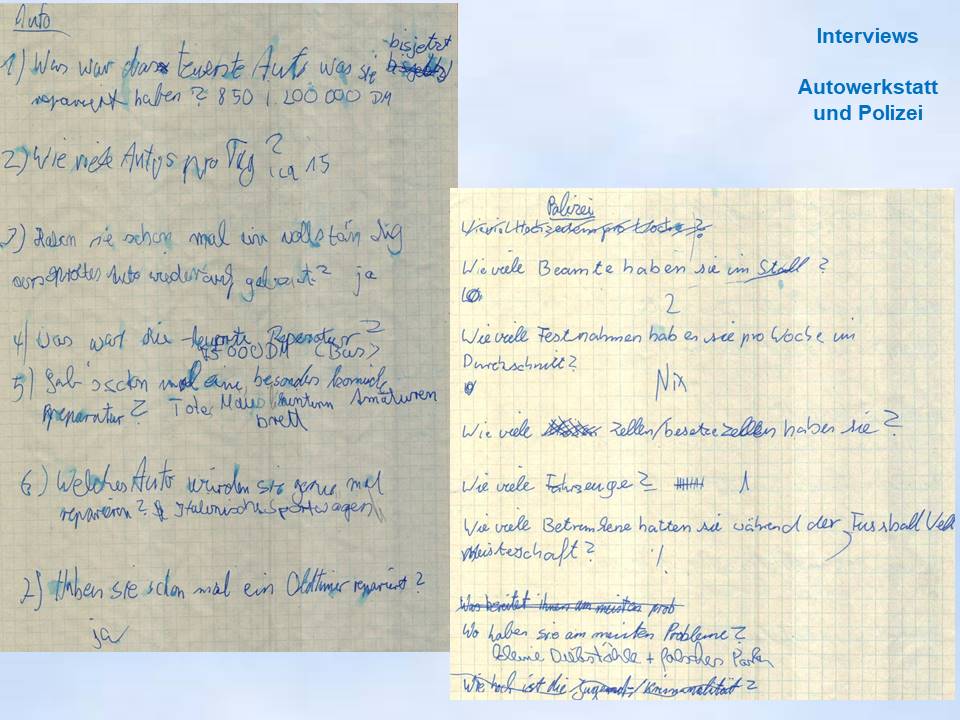 Auto
1) Was war das teuerste Auto was sie bisjetzt
repariert haben? 850 i 200 000 DM
2) Wie viele Autos pro Tag? ca 15
3) Haben sie schon mal ein vollständig
Auto wieder auf gebaut? ja
4) Was war die teuerste Reperatur?
75 000 DM (Bus)
5) Gab's schon mal eine besonders komische
Reparatur? Tote Maus hinterm Amaturen
brett
6.) Welches Auto würden sie gerne mal
reparieren? Italienische Sportwagen
7) Haben sie schon mal ein Oldtimer repariert?
ja
Interviews
Autowerkstatt
und Polizei
Polizei
Wie viele Beamte haben sie im Stall?
2
Wie viele Festnahmen haben sie pro Woche im
Durchschnitt?
Nix
Wie viele Zellen/besetzte Zellen haben sie?
Wie viele Fahrzeuge? 1
Wie viele Betrunkene hatten sie während der Fussball Welt
meisterschaft? %
Was bereitet ihnen am meisten prob
Wo haben sie am meisten Probleme?
kleine Diebstähle + falsches Parken
Wie hoch ist die Jugend-/Kriminalität?